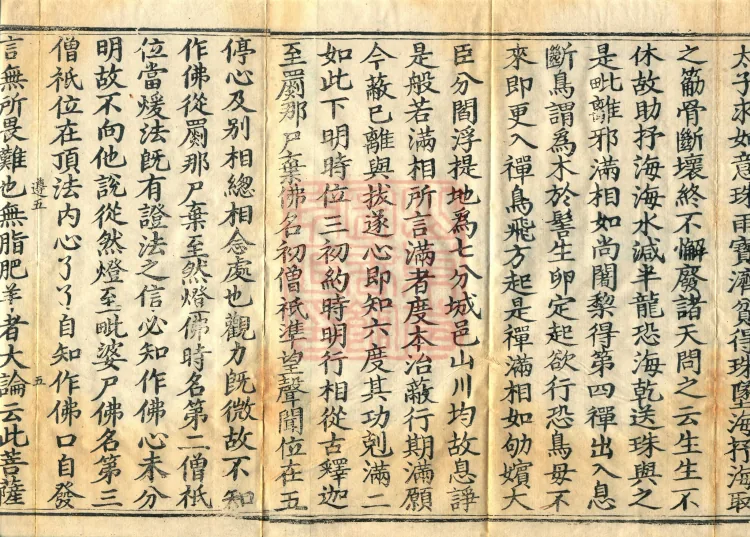 太子求如意珠雨寶濟貧得珠墮海抒海取
之筋骨斷壞終不懈廢諸天問之云生生不
休故助抒海海水減半龍恐海乾送珠與之
是毗離邪滿相如尚闍黎得第四禪出入息
斷鳥謂為木於髻生卵定起欲行恐鳥母不
來即更入禪鳥飛方起是禪滿相如劬嬪大
臣分閻浮提地為七分城邑山川均故息諍
是般若滿相所言滿者度本治蔽行期滿願
今蔽已離與拔遂心即知六度其功剋滿二
如此下明時位三初約時明行相從古釋迦
至罽那尸棄佛名初僧祇準望聲聞位在五
停心及別相緫相念處也觀力既微故不知
作佛從罽那尸棄至然燈佛時名第二僧祇
位當煖法既有證法之信必知作佛心未分
明故不向他說從然燈至毗婆尸佛名第三
僧祇位在頂法內心了了自知作佛口自發
遵五
五
言無所畏難也無脂肥羊者大論云此菩薩